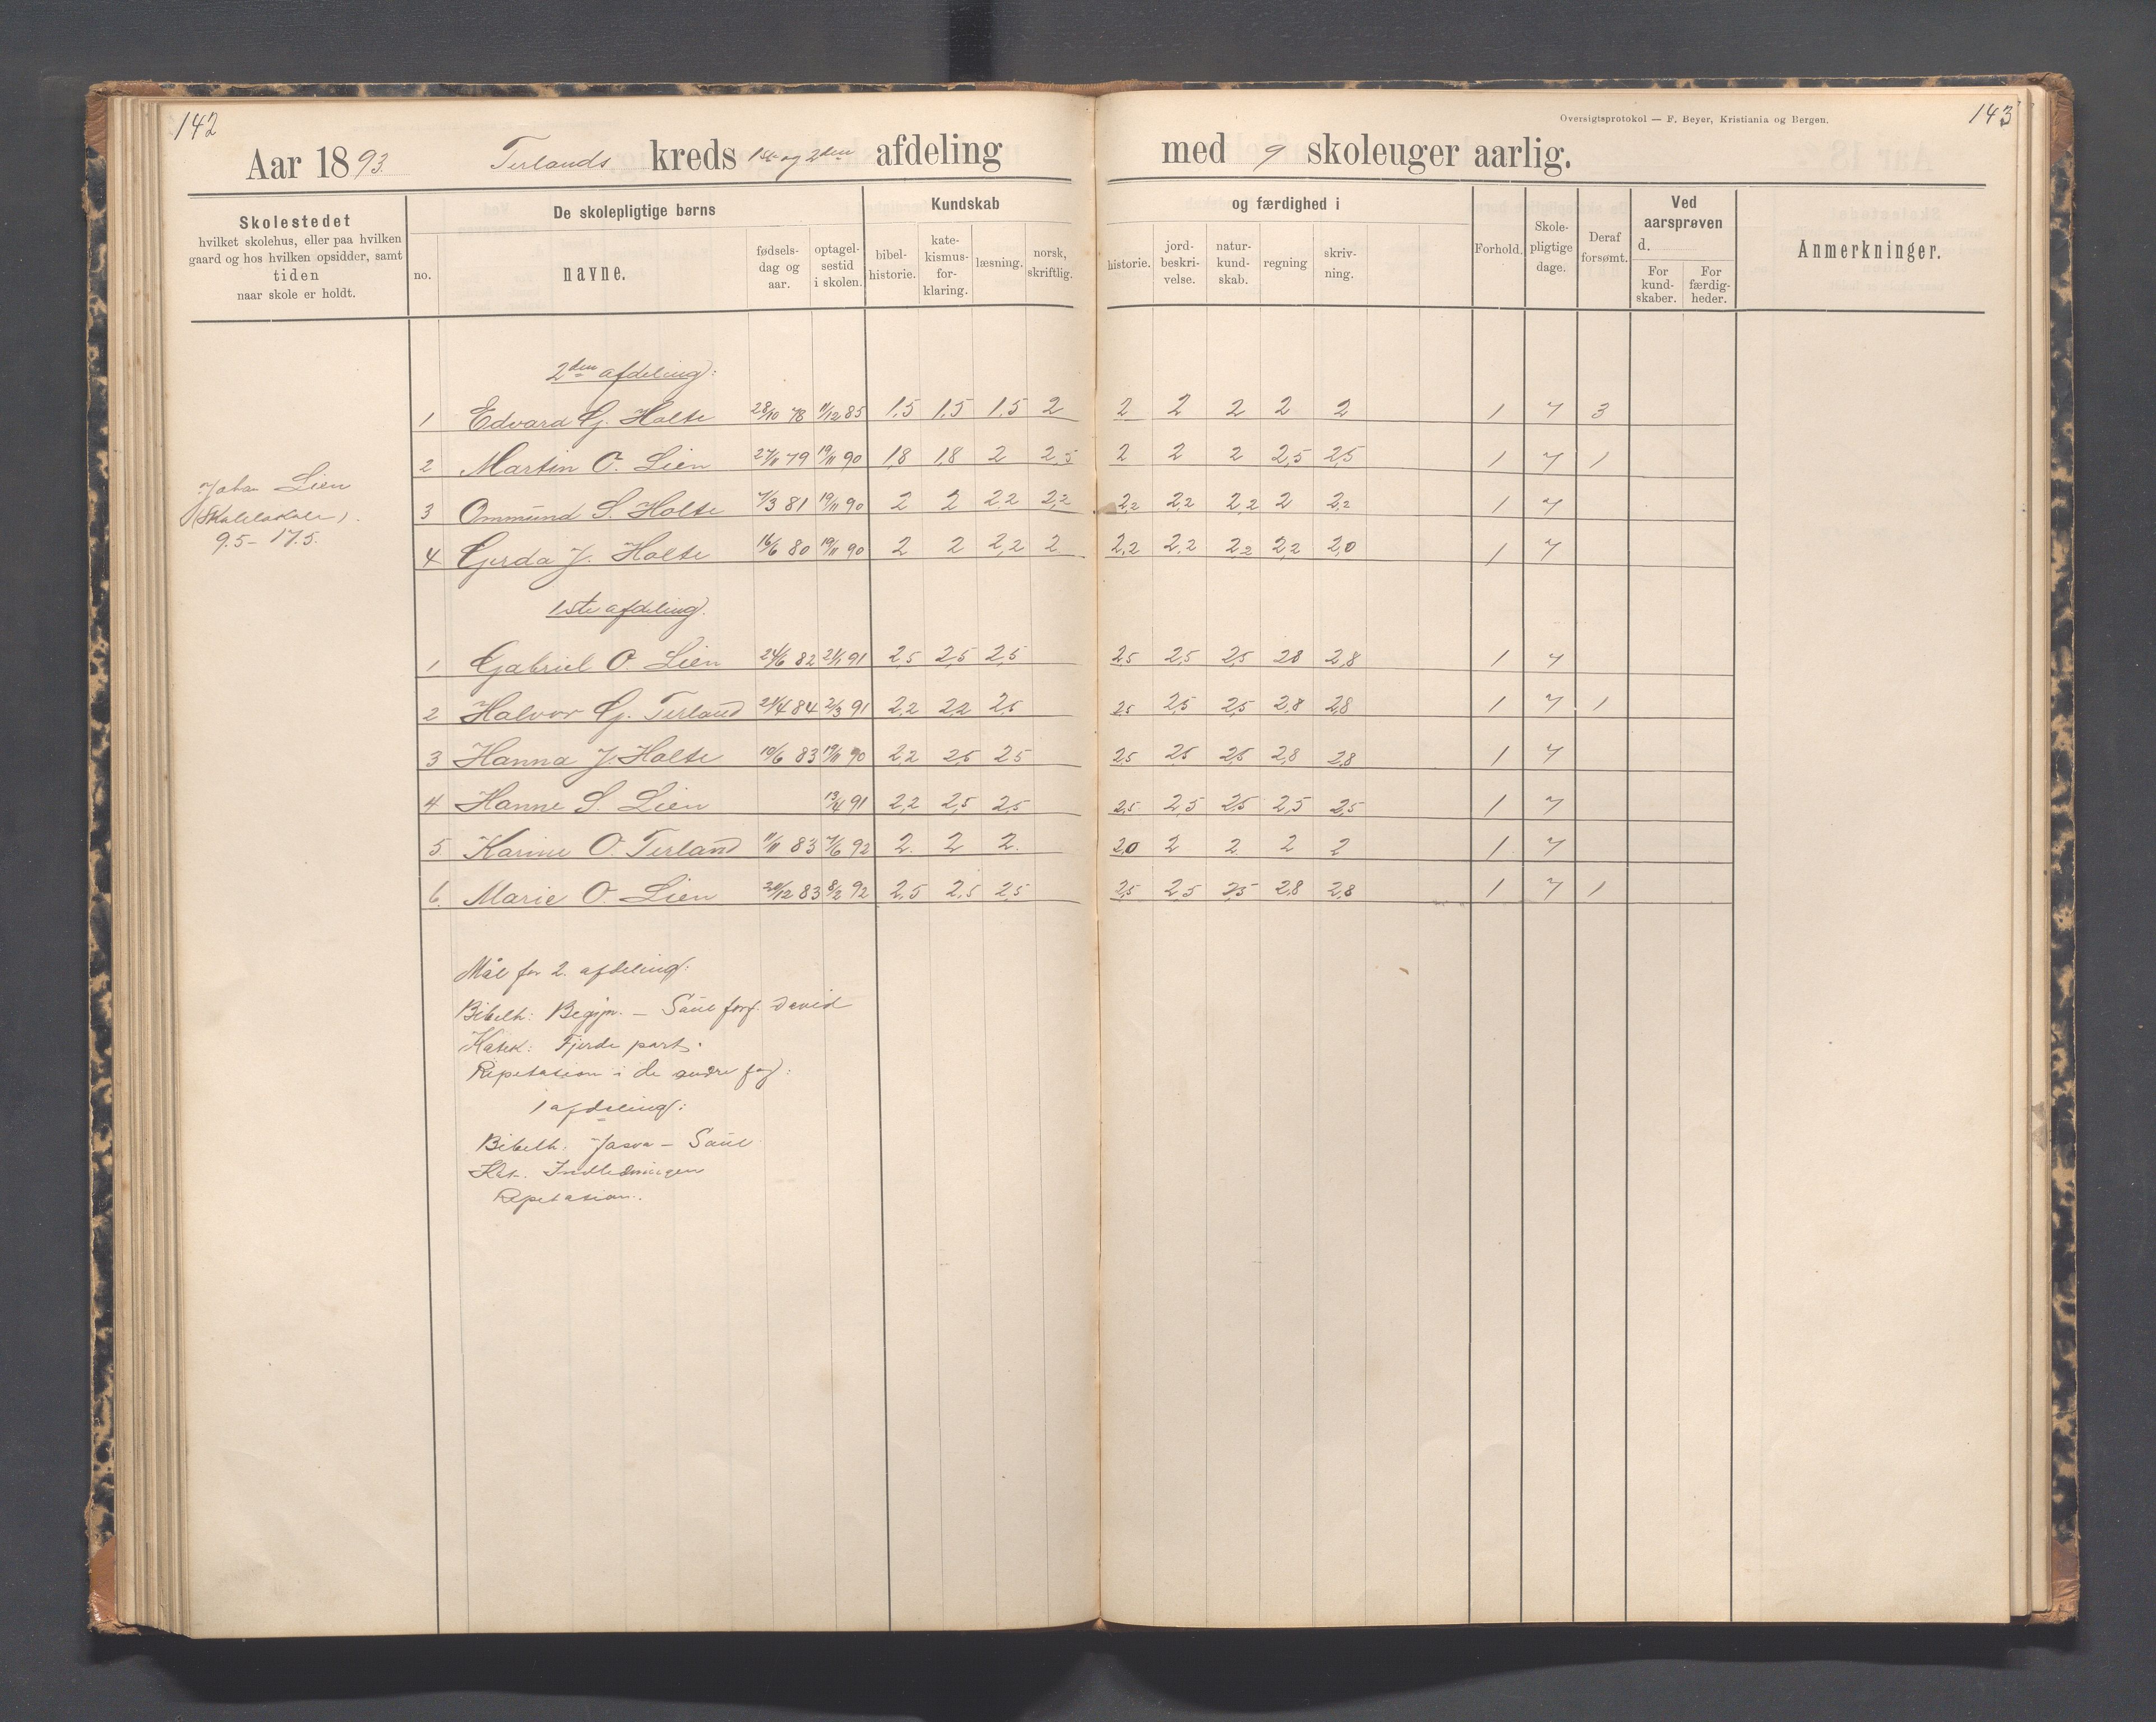 142
143
Oversigtsprotokol — F. Beyer, Kristiania og Bergen.
Aar 1893. Terlands kreds 1ste og 2den afdeling med 9 skoleuger aarlig.
Skolestedet hvilket skolehus, eller paa hvilken gaard og hos hvilken opsidder, samt tiden naar skole er holdt.
De skolepligtige børns
no. navne. fødsels-dag og aar. optagel-sestid i skolen.
Kundskab og færdighed i
bibel-historie. kate-kismus-for-klaring. læsning. norsk, skriftlig. historie. jord-beskri-velse. natur-kund-skab. regning skriv-ning.
Forhold. Skole-pligtige dage. Deraf forsømt.
Ved aarsprøven d.
For kund-skaber. For færdig-heder.
Anmerkninger.
2den afdeling:
1 Edvard G. Holte 28/10 78 11/12 85 1,5 1,5 1,5 2 2 2 2 2 2 1 7 3
2 Martin O. Lien 27/11 79 19/11 90 1,8 1,8 2 2,5 2 2 2 2,5 2,5 1 7 1
3 Ommund S. Holte 7/3 81 19/11 90 2 2 2,2 2,2 2,2 2,2 2,2 2 2,2 1 7
4 Gerda J. Holte 16/6 80 19/11 90 2 2 2,2 2 2,2 2,2 2,2 2,2 2,0 1 7
Johan Lien
9.5 – 17.5.
1ste afdeling.
1 Gabriel O. Lien 24/6 82 21/1 91 2,5 2,5 2,5 2,5 2,5 2,5 2,8 2,8 1 7
2 Halvor G. Terland 21/4 84 2/3 91 2,2 2,2 2,5 2,5 2,5 2,5 2,8 2,8 1 7 1
3 Hanna J. Holte 10/6 83 19/11 90 2,2 2,5 2,5 2,5 2,5 2,5 2,8 2,8 1 7
4 Hanne S. Lien 13/4 91 2,2 2,5 2,5 2,5 2,5 2,5 2,5 2,5 1 7
5 Karine O. Terland 11/11 83 7/6 92 2. 2 2. 2,0 2 2. 2 2 1 7
6. Marie O. Lien 20/12 83 8/2 92 2,5 2,5 2,5 2,5 2,5 2,5 2,8 2,8 1 7 1
Mål for 2. afdeling:
Bibelh: Begyn. – Saul forf. David
Katek: Fjerde part.
Repetasion i de andre fag:
1 afdeling:
Bibelh. Josva – Saul
Kat. Indledningen
Repetasion.